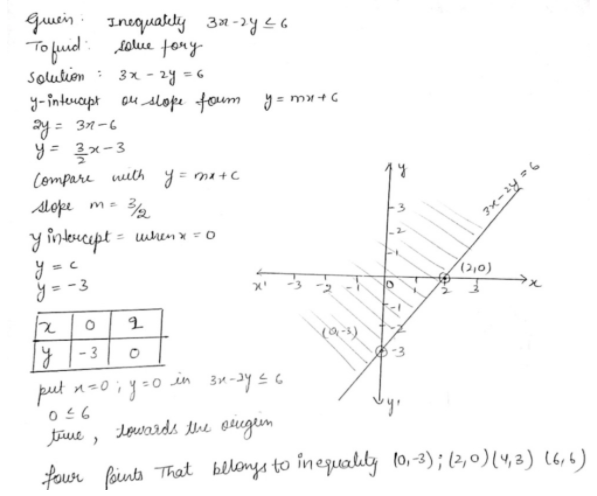 Given : Inequality 3x - 2y ≤ 6
To find : solve for y
Solution : 3x - 2y = 6
y-intercept or slope form y = mx + c
2y = 3x - 6
y = 3/2 x - 3
Compare with y = mx + c
slope m = 3/2
y intercept = when x = 0
y = c
y = -3
x 0 2
y -3 0
put x = 0 ; y = 0 in 3x - 2y ≤ 6
0 ≤ 6
true , towards the origin
four points That belongs to inequality (0,-3) ; (2,0) (4,3) (6,6)
y
3x - 2y = 6
3
2
1
(2,0)
x' -3 -2 -1 0 1 2 3 x
-1
(0,-3) -2
-3
y'